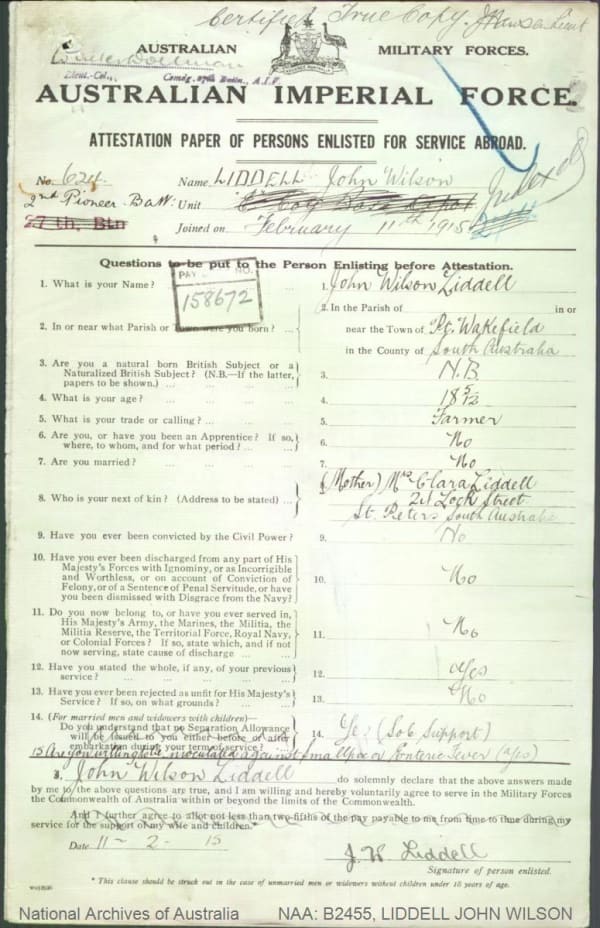 Certified True Copy.
AUSTRALIAN MILITARY FORCES.
Lieut.-Col., Comdg. 27th Battn., A.I.F.
AUSTRALIAN IMPERIAL FORCE.
ATTESTATION PAPER OF PERSONS ENLISTED FOR SERVICE ABROAD.
No. 624. Name LIDDELL John Wilson
2nd Pioneer Batt: Unit
27th. Btn Joined on February 11th 1915
Questions to be put to the Person Enlisting before Attestation.
PAY NO.
158672
1. What is your Name? ... 1. John Wilson Liddell
2. In or near what Parish or Town were you born? ... 2. In the Parish of in or
near the Town of Pt. Wakefield
in the County of South Australia
3. Are you a natural born British Subject or a
Naturalized British Subject? (N.B.—If the latter,
papers to be shown.) ... 3. N.B.
4. What is your age? ... 4. 18 5/12
5. What is your trade or calling? ... 5. Farmer
6. Are you, or have you been an Apprentice? If so,
where, to whom, and for what period? ... 6. No
7. Are you married? ... 7. No
8. Who is your next of kin? (Address to be stated) ... (Mother) Mrs Clara Liddell
Street
St. Peters South Australia
9. Have you ever been convicted by the Civil Power? 9. No
10. Have you ever been discharged from any part of His
Majesty's Forces with Ignominy, or as Incorrigible
and Worthless, or on account of Conviction of
Felony, or of a Sentence of Penal Servitude, or have
you been dismissed with Disgrace from the Navy? 10. No
11. Do you now belong to, or have you ever served in,
His Majesty's Army, the Marines, the Militia, the
Militia Reserve, the Territorial Force, Royal Navy,
or Colonial Forces? If so, state which, and if not
now serving, state cause of discharge ... 11. No
12. Have you stated the whole, if any, of your previous
service? ... 12. Yes
13. Have you ever been rejected as unfit for His Majesty's
Service? If so, on what grounds? ... 13. No
14. (For married men and widowers with children)—
Do you understand that no Separation Allowance
will be issued to you either before or after
embarkation during your term of service? 14. Yes (Sob Support)
15 Are you willing to be inoculated against Small pox or Enteric Fever (yes)
I, John Wilson Liddell do solemnly declare that the above answers made
by me to the above questions are true, and I am willing and hereby voluntarily agree to serve in the Military Forces
of the Commonwealth of Australia within or beyond the limits of the Commonwealth.
And I further agree to allot not less than two-fifths of the pay payable to me from time to time during my
service for the support of my wife and children.*
Date 11 - 2 - 15
J. W Liddell
Signature of person enlisted.
* This clause should be struck out in the case of unmarried men or widowers without children under 18 years of age.
National Archives of Australia NAA: B2455, LIDDELL JOHN WILSON